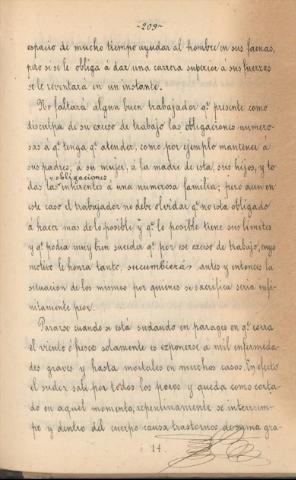 -209-
espacio de mucho tiempo ayudar al hombre en sus faenas,
pero si se le obliga á dar una carrera superior á sus fuerzas
se le reventara en un instante.
No faltará algun buen trabajador qe presente como
disculpa de su exceso de trabajo las obligaciones numero-
sas á qe tenga qe atender, como por ejemplo mantener á
sus padres, á su mujer, á la madre de esta, sus hijos, y to
das las obligaciones inherentes á una numerosa familia; pero aun en
este caso el trabajador no debe olvidar qe no está obligado
á hacer mas de lo posible y qe lo posible tiene sus límites
y qe podia muy bien suceder qe por ese exceso de trabajo, cuyo
motivo le honra tanto, sucumbiera antes y entonces la
situacion de los mismos por quienes se sacrifica seria infi-
nitamente peor.
Pararse cuando se está sudando en parages en qe corra
el viento ó fresco solamente es exponerse á mil enfermeda
des graves y hasta mortales en muchos casos. En efecto
el sudor sale por todos los poros y queda como corta
do en aquel momento, repentinamente se interrum-
pe y dentro del cuerpo causa trastornos de suma gra-
14